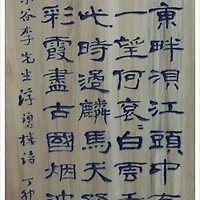 東畔浿江頭中有
一望何哀白雲
此時過麟馬天
彩霞盡古國烟
谷李先生浮碧樓詩 丁